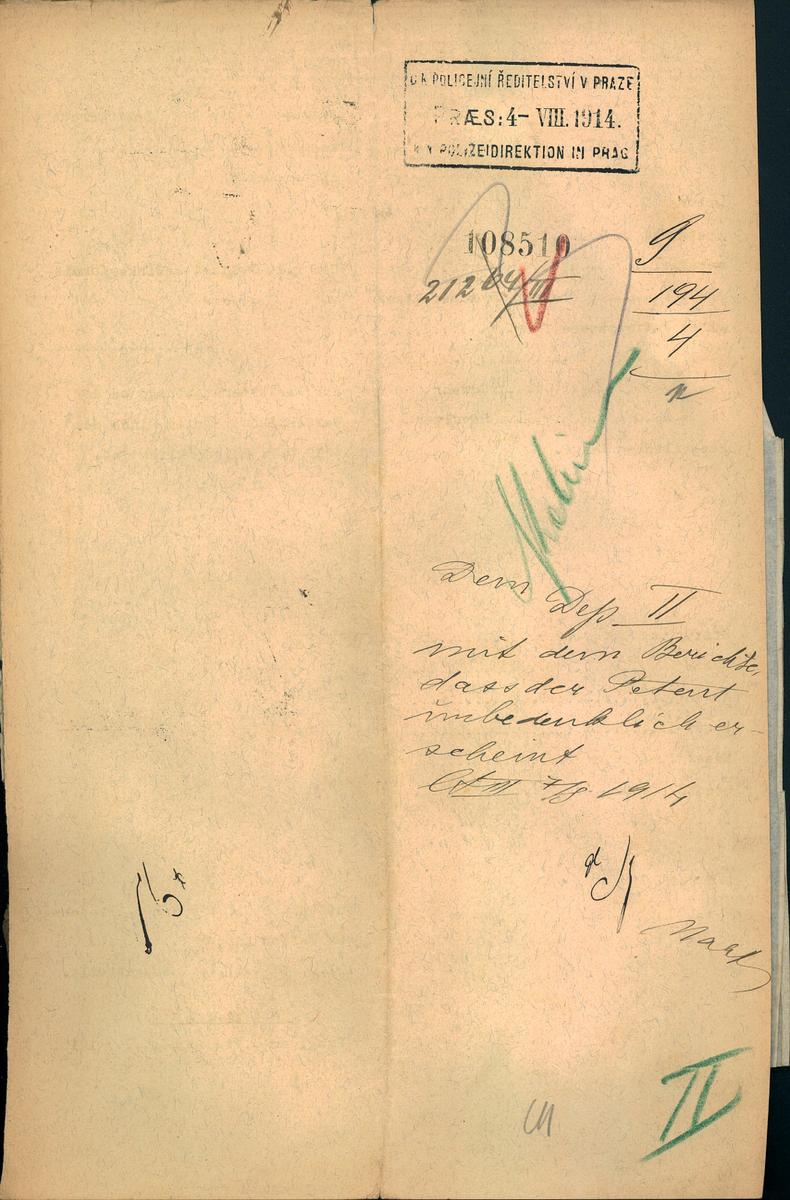 C. K. POLICEJNÍ ŘEDITELSTVÍ V PRAZE
PRÆS: 4- VIII. 1914.
K. K. POLIZEIDIREKTION IN PRAG
108510
9
194
4
Dem Dep II
mit dem Berichte,
dass der Petent
unbedenklich er-
scheint
7/8 1914
II